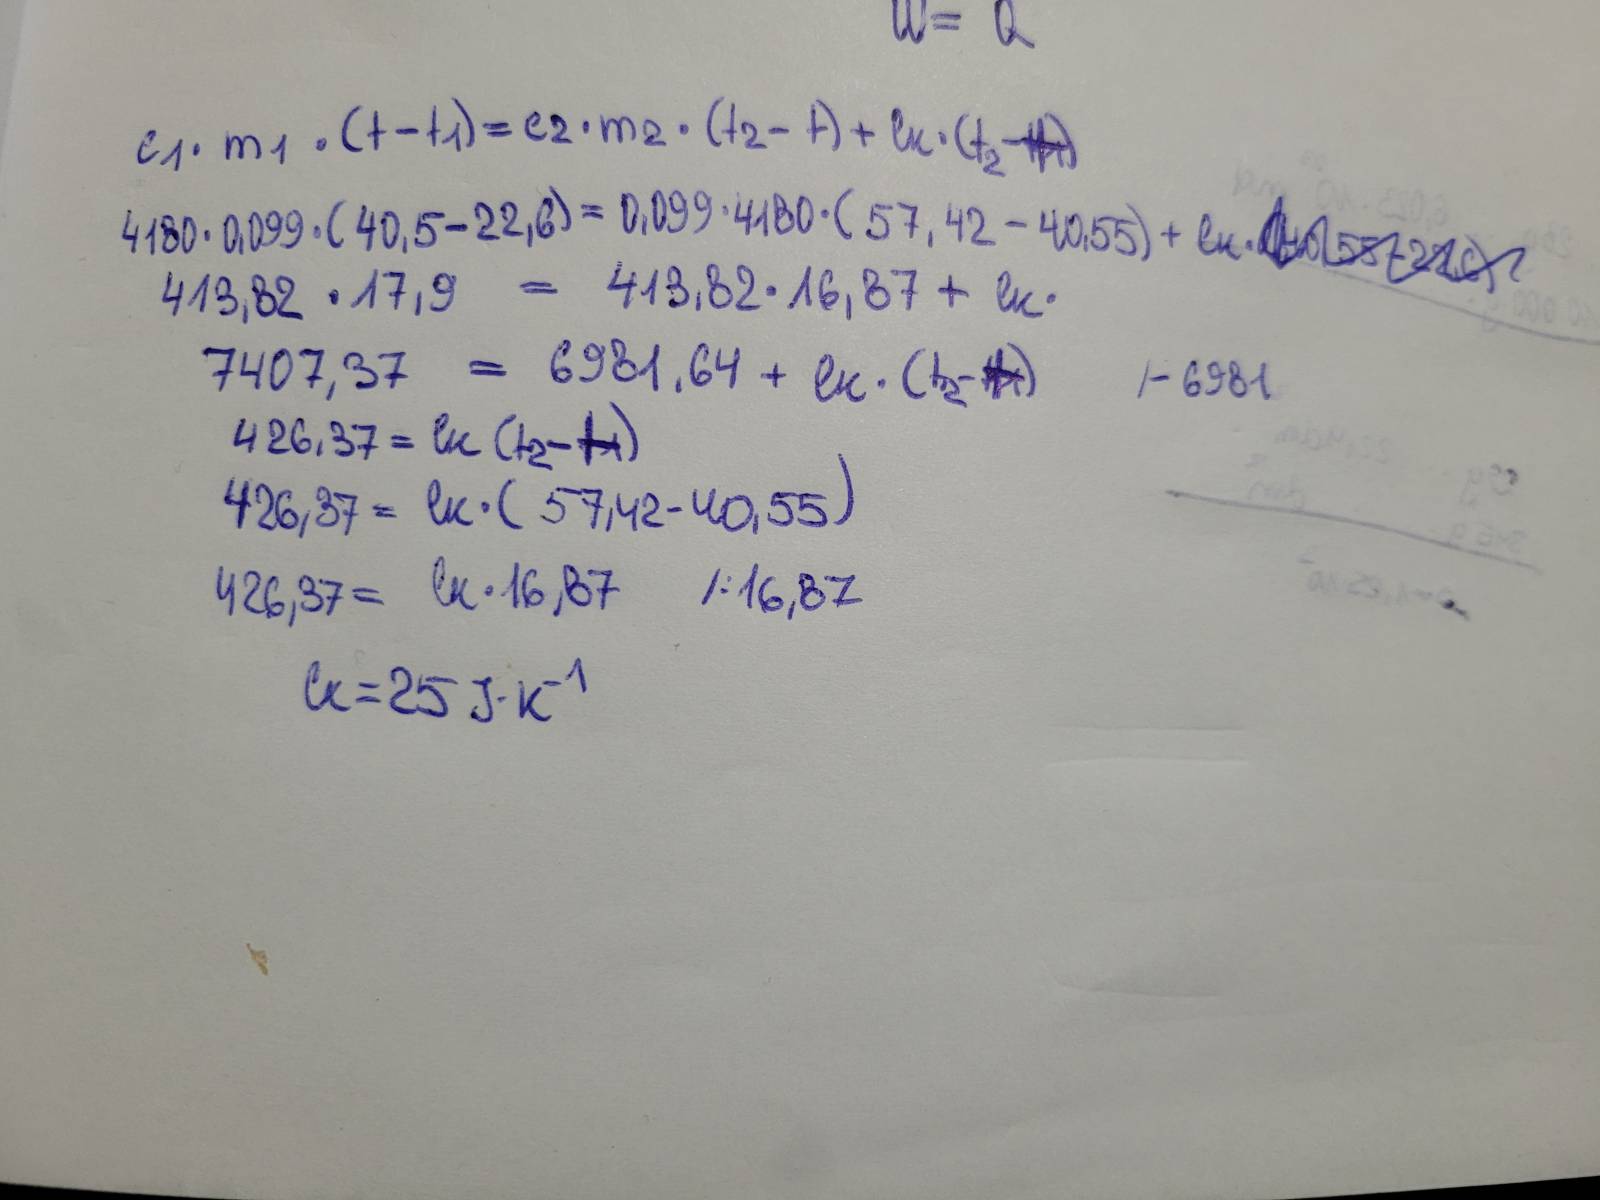 W = Q
c1 · m1 · (t – t1) = c2 · m2 · (t2 – t) + Ck · (t2 – t)
4180 · 0,099 · (40,5 – 22,6) = 0,099 · 4180 · (57,42 – 40,55) + Ck ·
413,82 · 17,9 = 413,82 · 16,87 + Ck ·
7407,37 = 6981,64 + Ck · (t2 – t) /– 6981
426,37 = Ck (t2 – t)
426,37 = Ck · (57,42 – 40,55)
426,37 = Ck · 16,87 / : 16,87
Ck = 25 J · K⁻¹